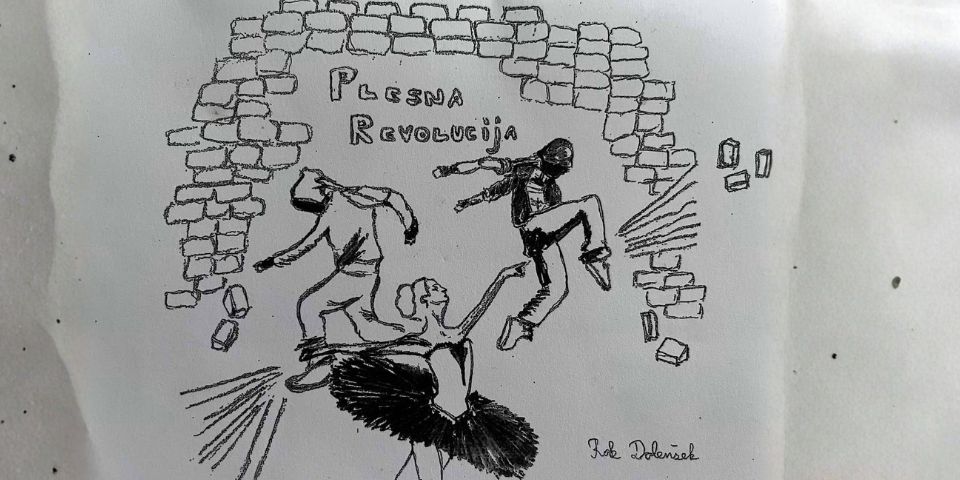 Plesna
Revolucija
Rok Dolenšek